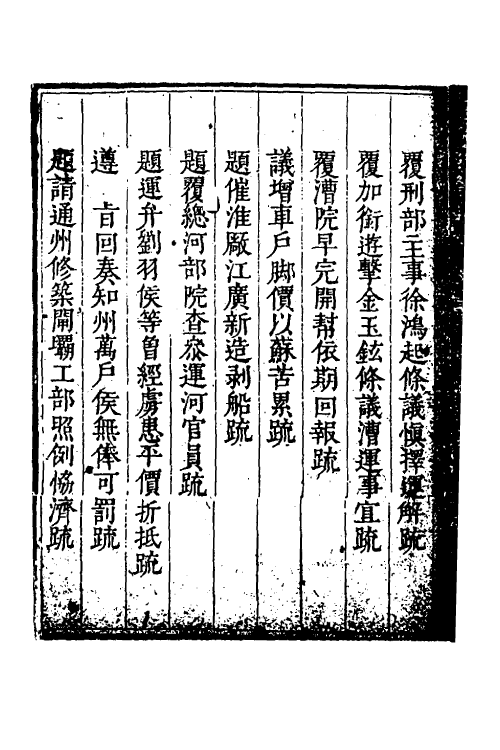 覆刑部主事徐鴻起條議愼擇運解疏
覆加銜遊擊金玉鉉條議漕運事宜疏
覆漕院早完開幫依期回報疏
議增車戶脚價以蘇苦累疏
題催淮厰江廣新造剥船疏
題覆總河部院查叅運河官員疏
題運弁劉羽侯等曾經虜患平價折抵疏
遵　旨回奏知州萬戶侯無俸可罰疏
題請通州修築閘壩工部照例恊濟疏